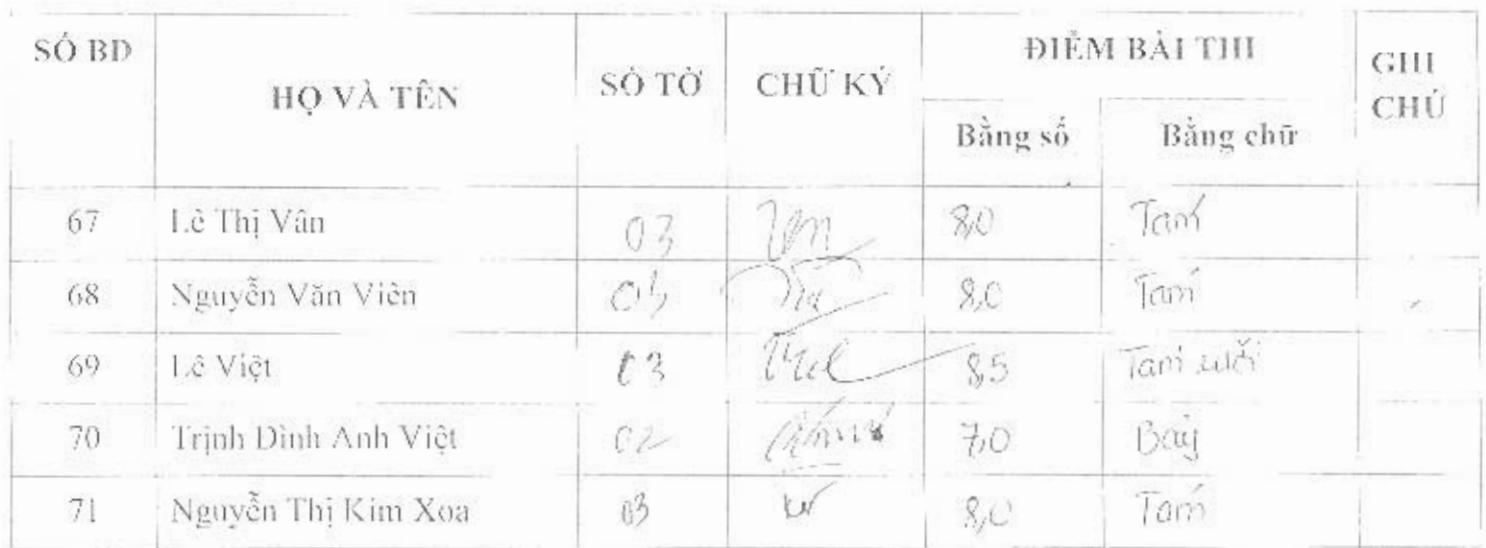 SỐ BD HỌ VÀ TÊN SỐ TỜ CHỮ KÝ ĐIỂM BÀI THI GHI CHÚ
Bằng số Bằng chữ
67 Lê Thị Vân 03 8,0 Tám
68 Nguyễn Văn Viên 03 8,0 Tám
69 Lê Việt 03 8,5 Tám rưỡi
70 Trịnh Đình Anh Việt 02 7,0 Bảy
71 Nguyễn Thị Kim Xoa 03 8,0 Tám